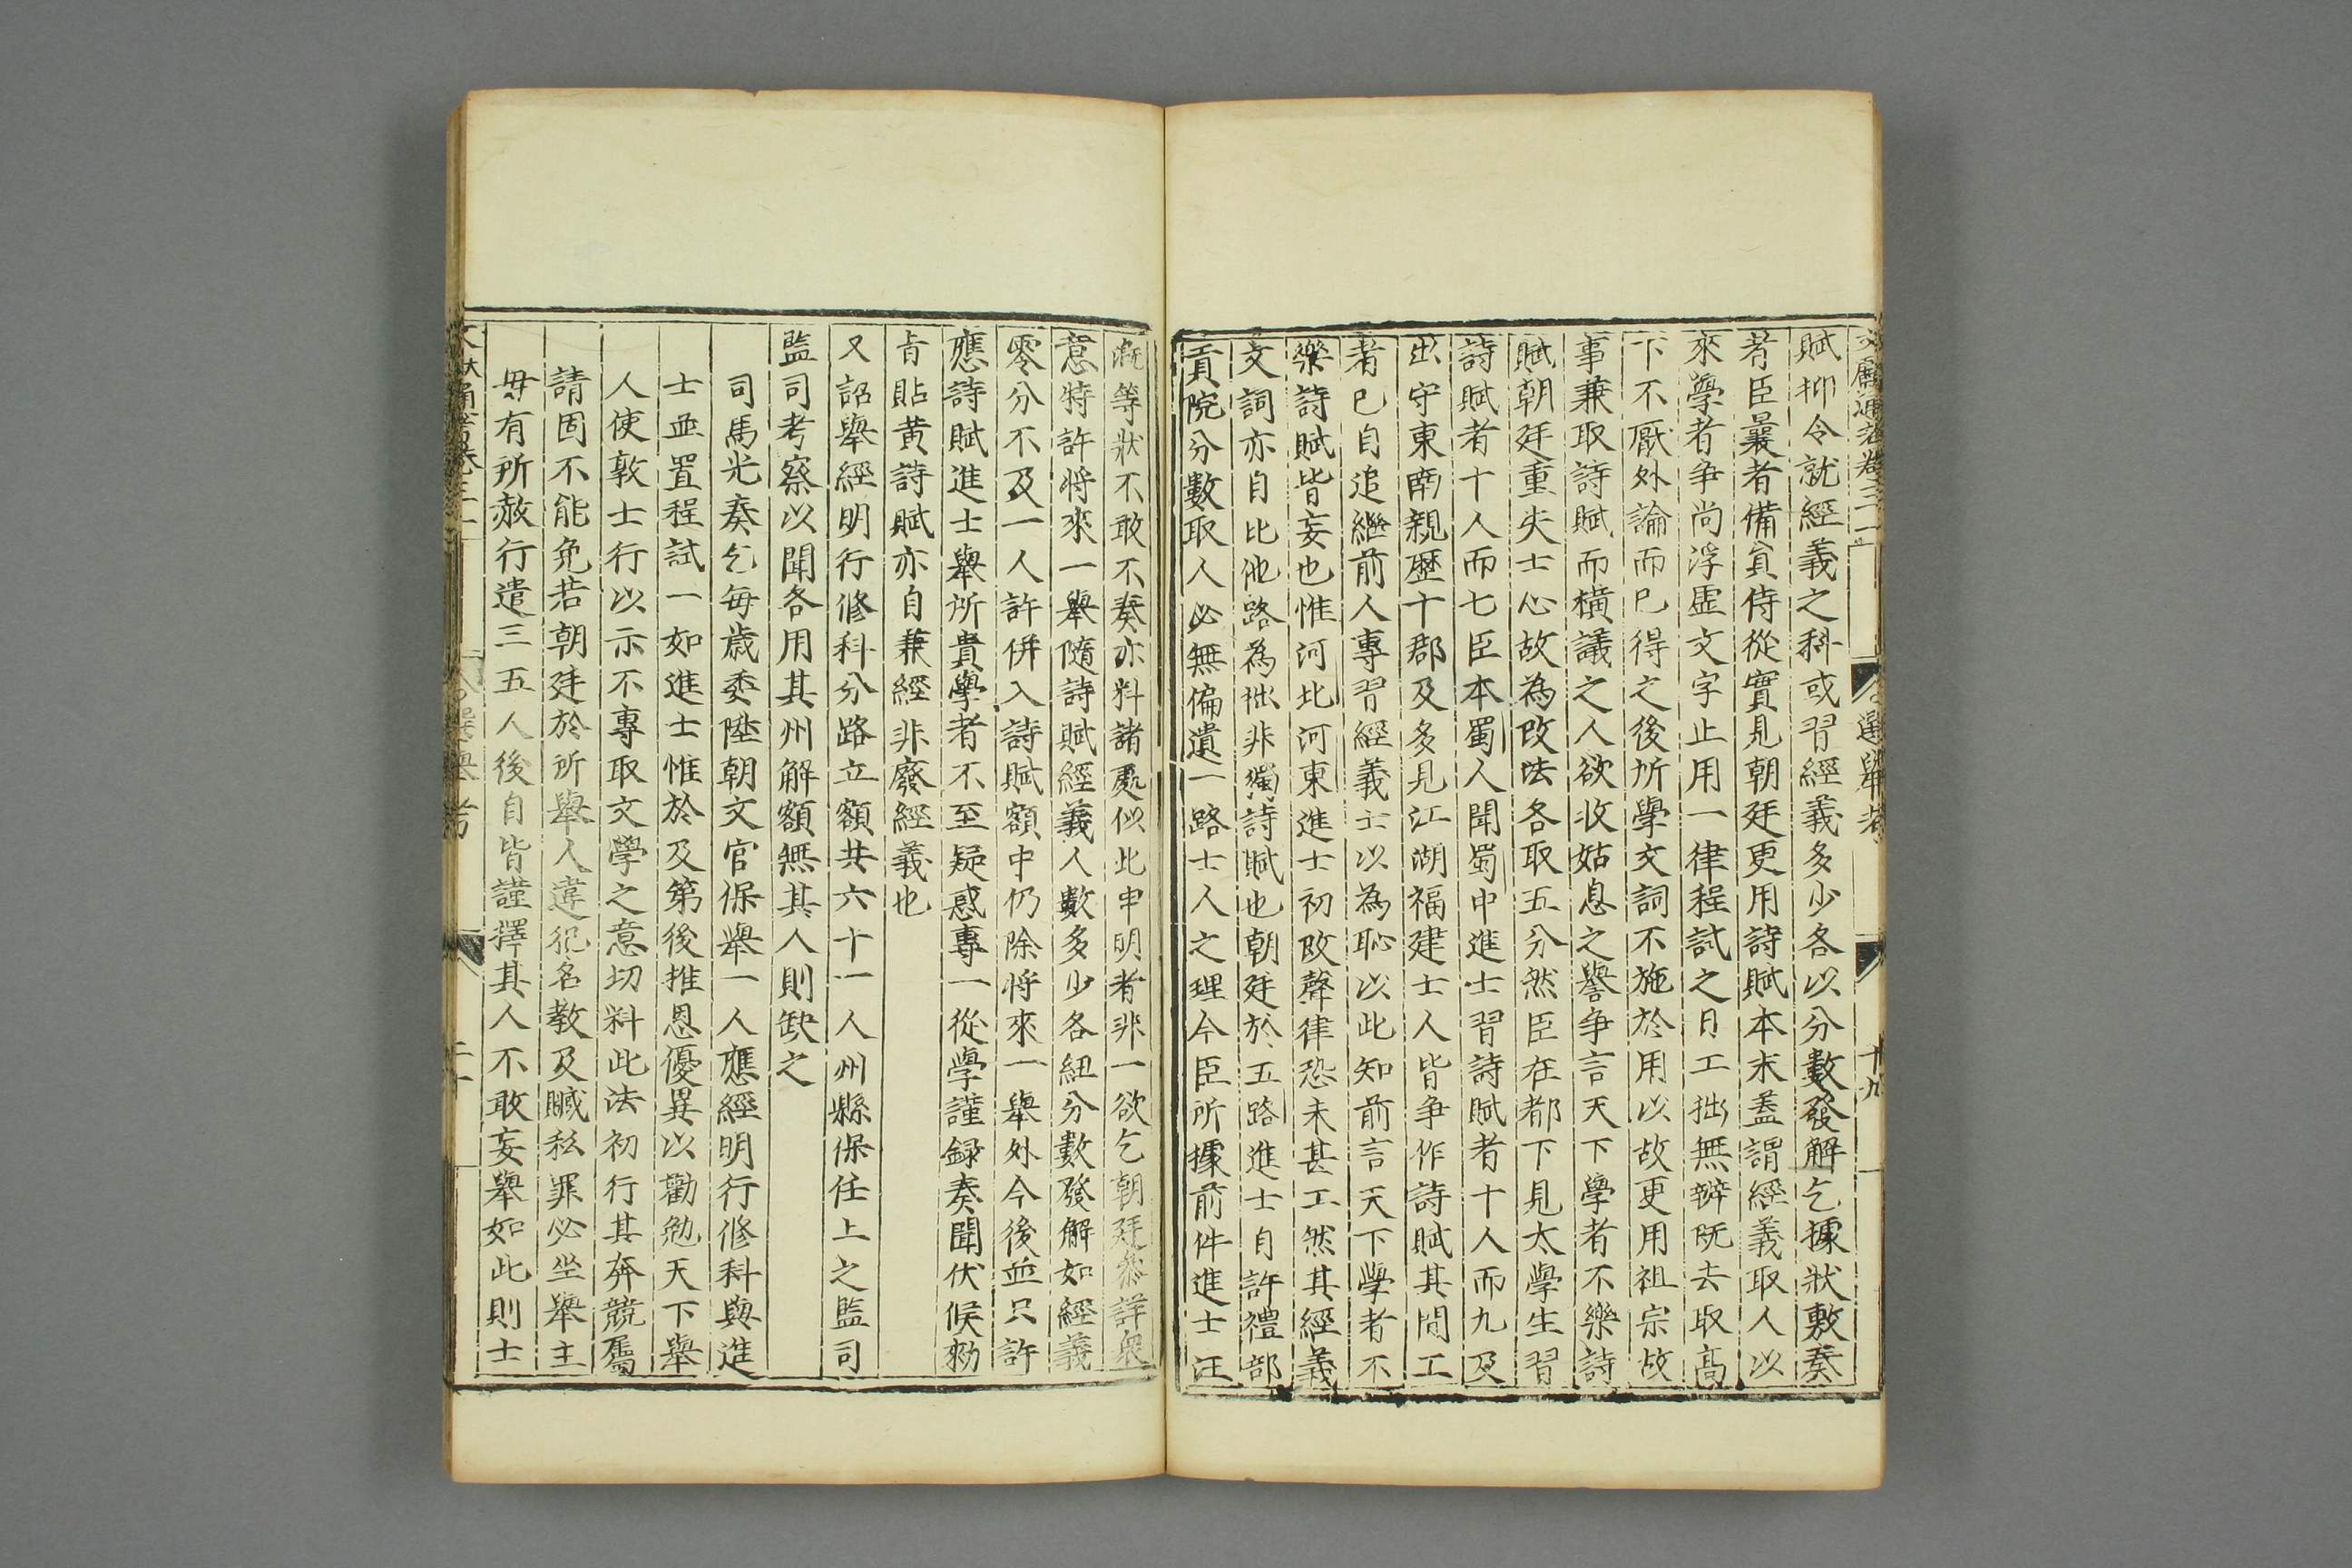 文獻通考卷三十一 選舉考 十九
賦抑令就經義之科或習經義多少各以分數發解乞據狀敷奏
者臣曩者備貟侍從實見朝廷更用詩賦本末盖謂經義取人以
來學者爭尚浮虛文字止用一律程試之日工拙無辨既去取髙
下不厭外論而已得之後所學文詞不施於用以故更用祖宗故
事兼取詩賦而橫議之人欲收姑息之譽爭言天下學者不樂詩
賦朝廷重失士心故為改法各取五分然臣在都下見太學生習
詩賦者十人而七臣本蜀人聞蜀中進士習詩賦者十人而九及
出守東南親歷十郡及多見江湖福建士人皆爭作詩賦其間工
者已自追繼前人專習經義士以為恥以此知前言天下學者不
樂詩賦皆妄也惟河北河東進士初改聲律恐未甚工然其經義
文詞亦自比他路為拙非獨詩賦也朝廷於五路進士自許禮部
貢院分數取人必無偏遺一路士人之理今臣所據前件進士汪
溉等狀不敢不奏亦料諸處似此申明者非一欲乞朝廷叅詳衆
意特許將來一舉隨詩賦經義人數多少各紐分數發解如經義
零分不及一人許併入詩賦額中仍除將來一舉外今後並只許
應詩賦進士舉所貴學者不至疑惑專一從學謹録奏聞伏候勑
旨貼黄詩賦亦自兼經非廢經義也
又詔舉經明行修科分路立額共六十一人州縣保任上之監司
監司考察以聞各用其州解額無其人則缺之
司馬光奏乞每歲委陞朝文官保舉一人應經明行修科與進
士並置程試一如進士惟於及第後推恩優異以勸勉天下舉
人使敦士行以示不專取文學之意切料此法初行其奔競屬
請固不能免若朝廷於所舉人違犯名教及贓私罪必坐舉主
毋有所赦行遣三五人後自皆謹擇其人不敢妄舉如此則士